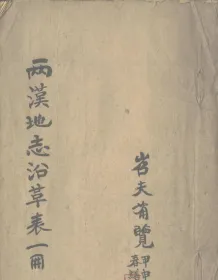 兩漢地志沿革表一冊
岩夫有覽
甲申
春